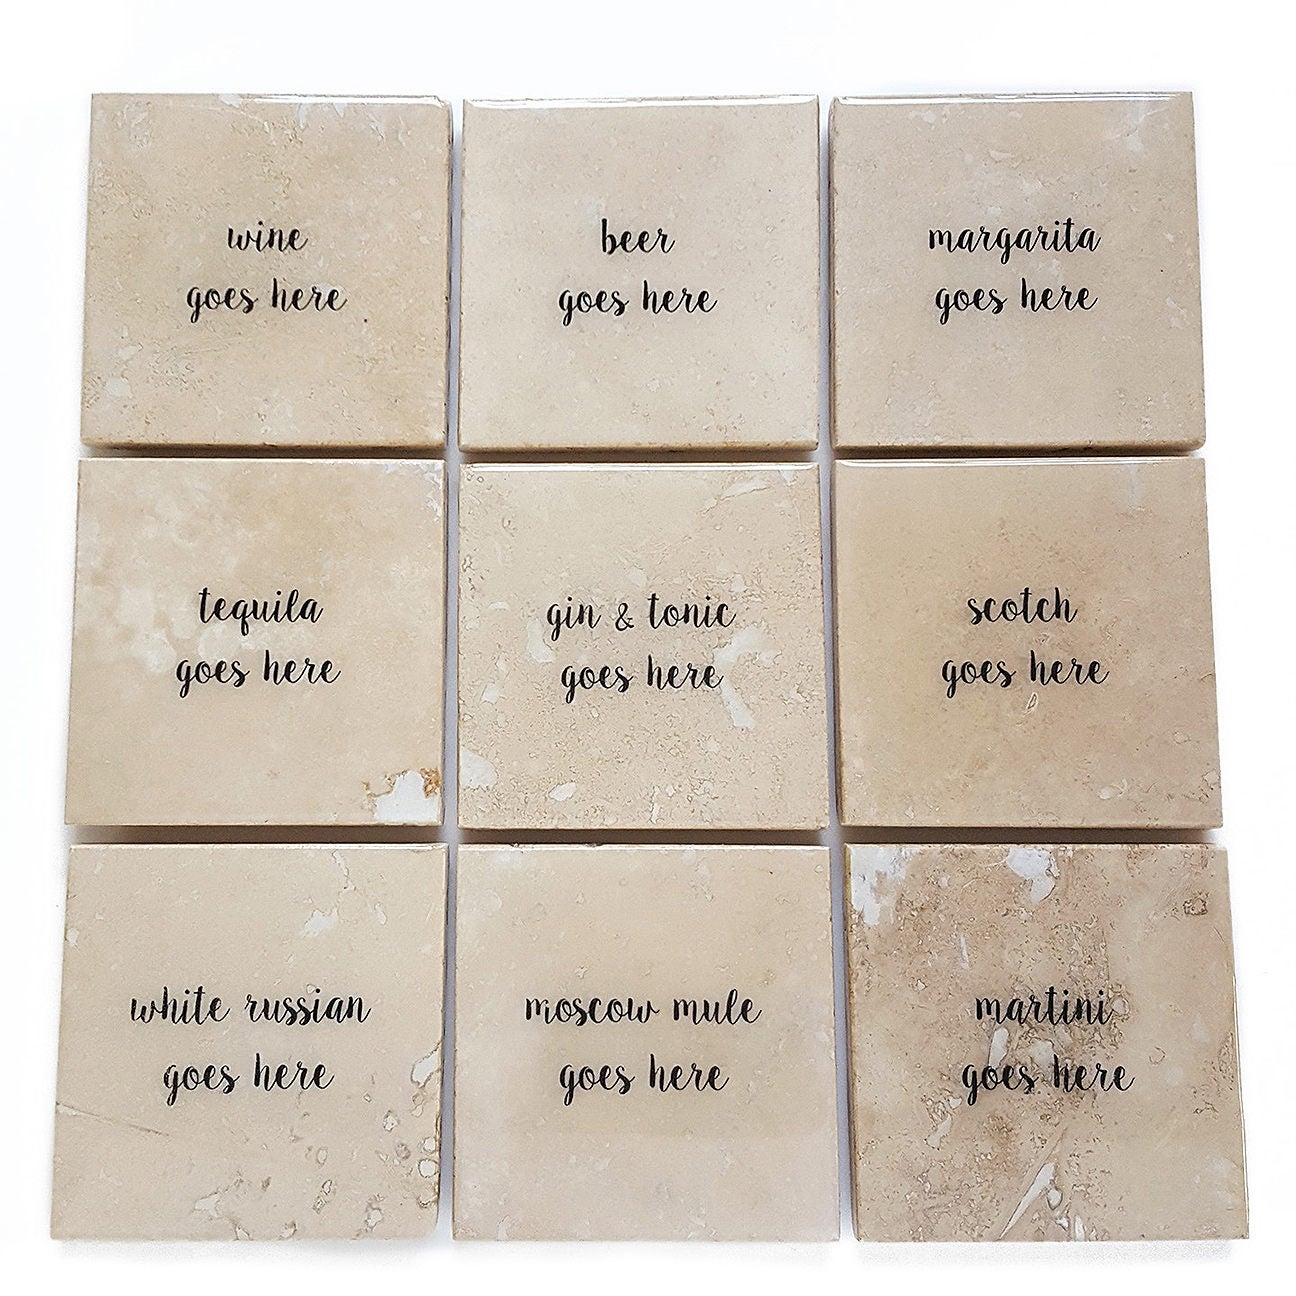 wine
goes here
beer
goes here
margarita
goes here
tequila
goes here
gin & tonic
goes here
scotch
goes here
white russian
goes here
moscow mule
goes here
martini
goes here